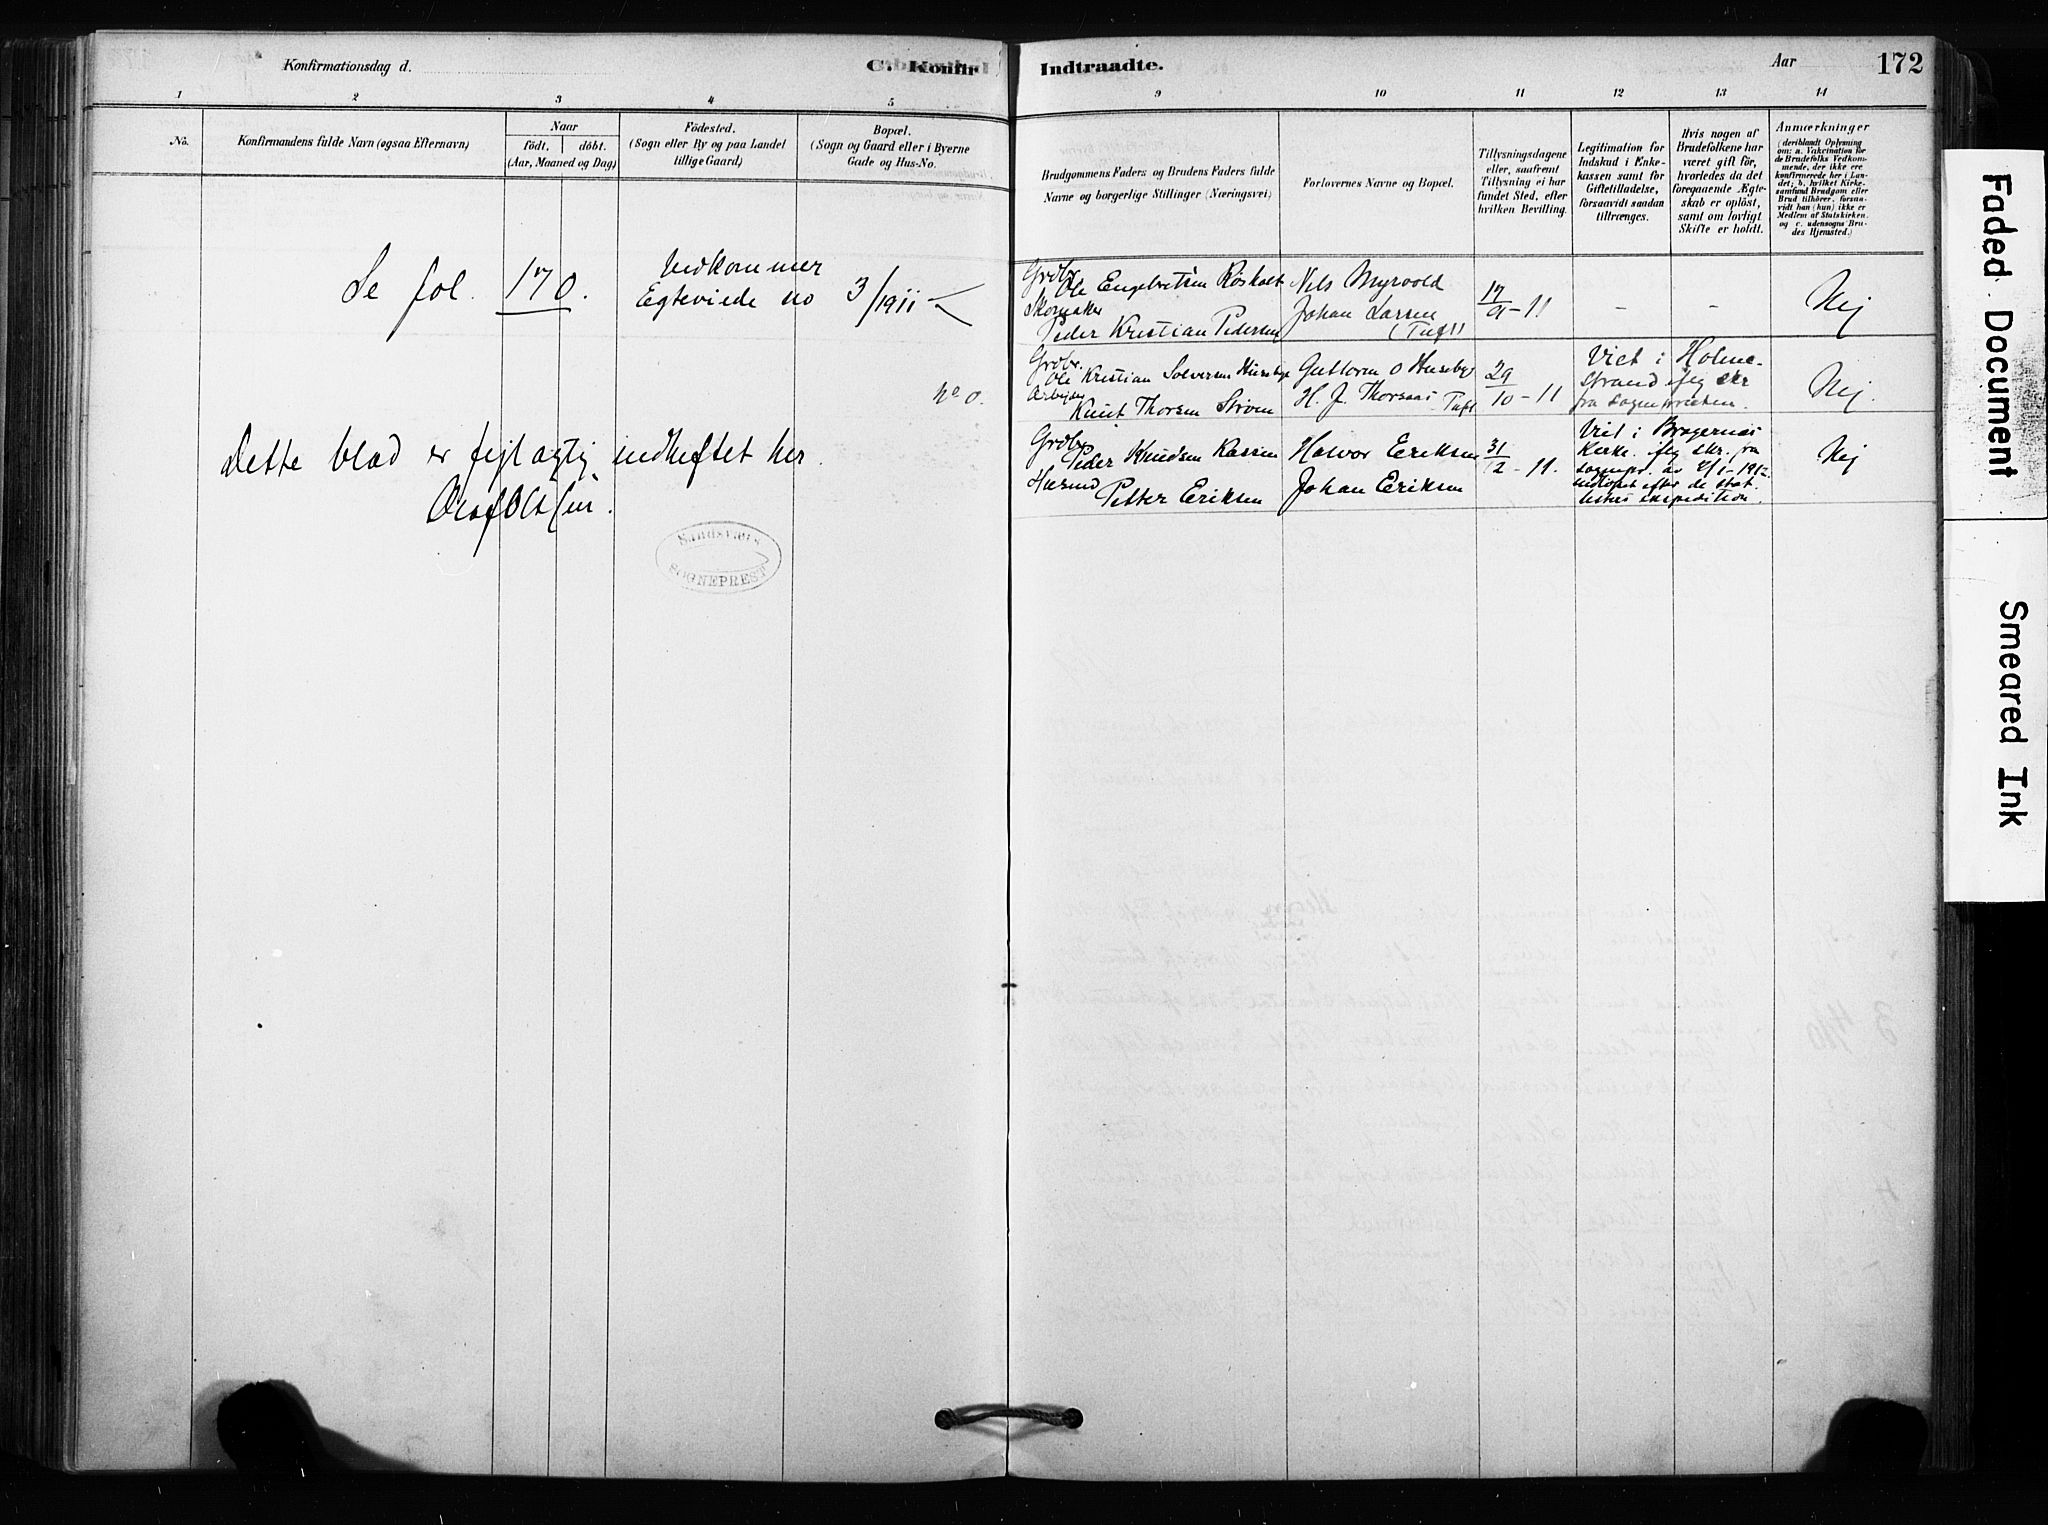 Konfirmationsdag d.
C. Konfir
1 2 3 4 5
No.
Konfirmandens fulde Navn (ogsaa Efternavn)
Naar
födt, döbt.
(Aar, Maaned og Dag)
Födested.
(Sogn eller By og paa Landet
tillige Gaard)
Bopæl.
(Sogn og Gaard eller i Byerne
Gade og Hus-No.
Se fol. 170.
Vedkommer
Egteviede no 3/1911
Dette blad er fejlagtig indheftet her.
Olaf Olsen.
Sandsværs
SOGNEPREST
Indtraadte.
Aar
172
9 10 11 12 13 14
Brudgommens Faders og Brudens Faders fulde
Navne og borgerlige Stillinger (Næringsvei)
Forlovernes Navne og Bopæl.
Tillysningsdagene
eller, saafremt
Tillysning ei har
fundet Sted, efter
hvilken Bevilling.
Legitimation for
Indskud i Enke-
kassen samt for
Giftetilladelse,
forsaavidt saadan
tiltrænges.
Hvis nogen af
Brudefolkene har
været gift för,
hvorledes da det
foregaaende Ægte-
skab er oplöst,
samt om lovligt
Skifte er holdt.
Anmærkninger
(deriblandt Oplysning
om: a. Vakcination för
de Brudefolks Vedkom-
mende, der ikke ere
konfirmerede her i Lan-
det; b. hvilket Kirke-
samfund Brudgom eller
Brud tilhörer, forsaa-
vidt han (hun) ikke er
Medlem af Statskirken,
og c. udensogns Bru-
des Hjemsted.)
Grdbr.
Ole Engebretsen Röskalt
Skomaker
Peder Kristian Pedersen
Nils Myrvold
Johan Larsen
(Tuft)
17/9 - 11
- -
Nej
Grdbr.
Ole Kristian Solversen Huseby
Arbejder
Knut Thorsen
Guttorm O Huseby
H. J. Thorsaas Tuft
29/10 - 11
Viet i Holme-
strand iflg skr
fra sognepresten.
Nej.
Grdbr
Peder Knudsen
Husmd
Petter Eriksen
Halvor Eriksen
Johan Eriksen
31/12 - 11.
Viet i Bragernæs
Kirke. iflg skr. fra
sognepr. av 2/1-1912
indlöpet efter de stat
listers expedition.
Nej
Faded Document
Smeared Ink